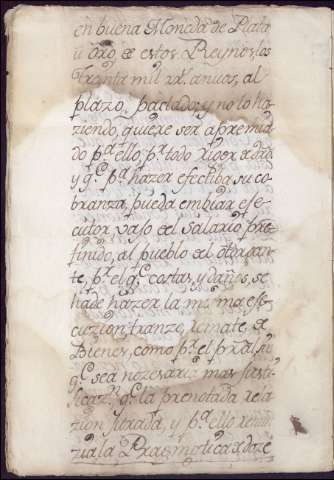 en buena Moneda de Plata
u oro, de estos Reynos los
trenta mil rr.s anuos, al
plazo, pactado; y no lo ha
ziendo, quiere ser apremia
do p.r ello, p.r todo rigor
y q.e p.a hazer efectiba su co
branza, pueda embiar eße
cutor vajo el salario pre
finido, al pueblo del otorgan
te, p.r el q.e costas, y daños, se
ha de hazer la misma eße
cuzion tranze, remate de
Bienes, como p.r el pral, sin
q.e sea nezesaria mas justi
ficaz.n q.e la prenotada rela
zion Jurada, y p.a ello renun
zia la Pracmatica